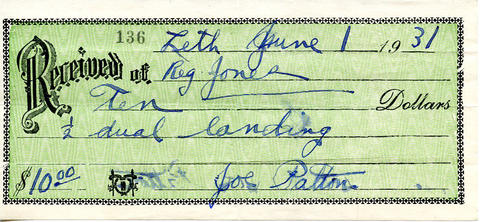 136 Leth June 1 1931
Received of Reg Jones
Ten Dollars
½ dual landing
$10.00 Joe Patton